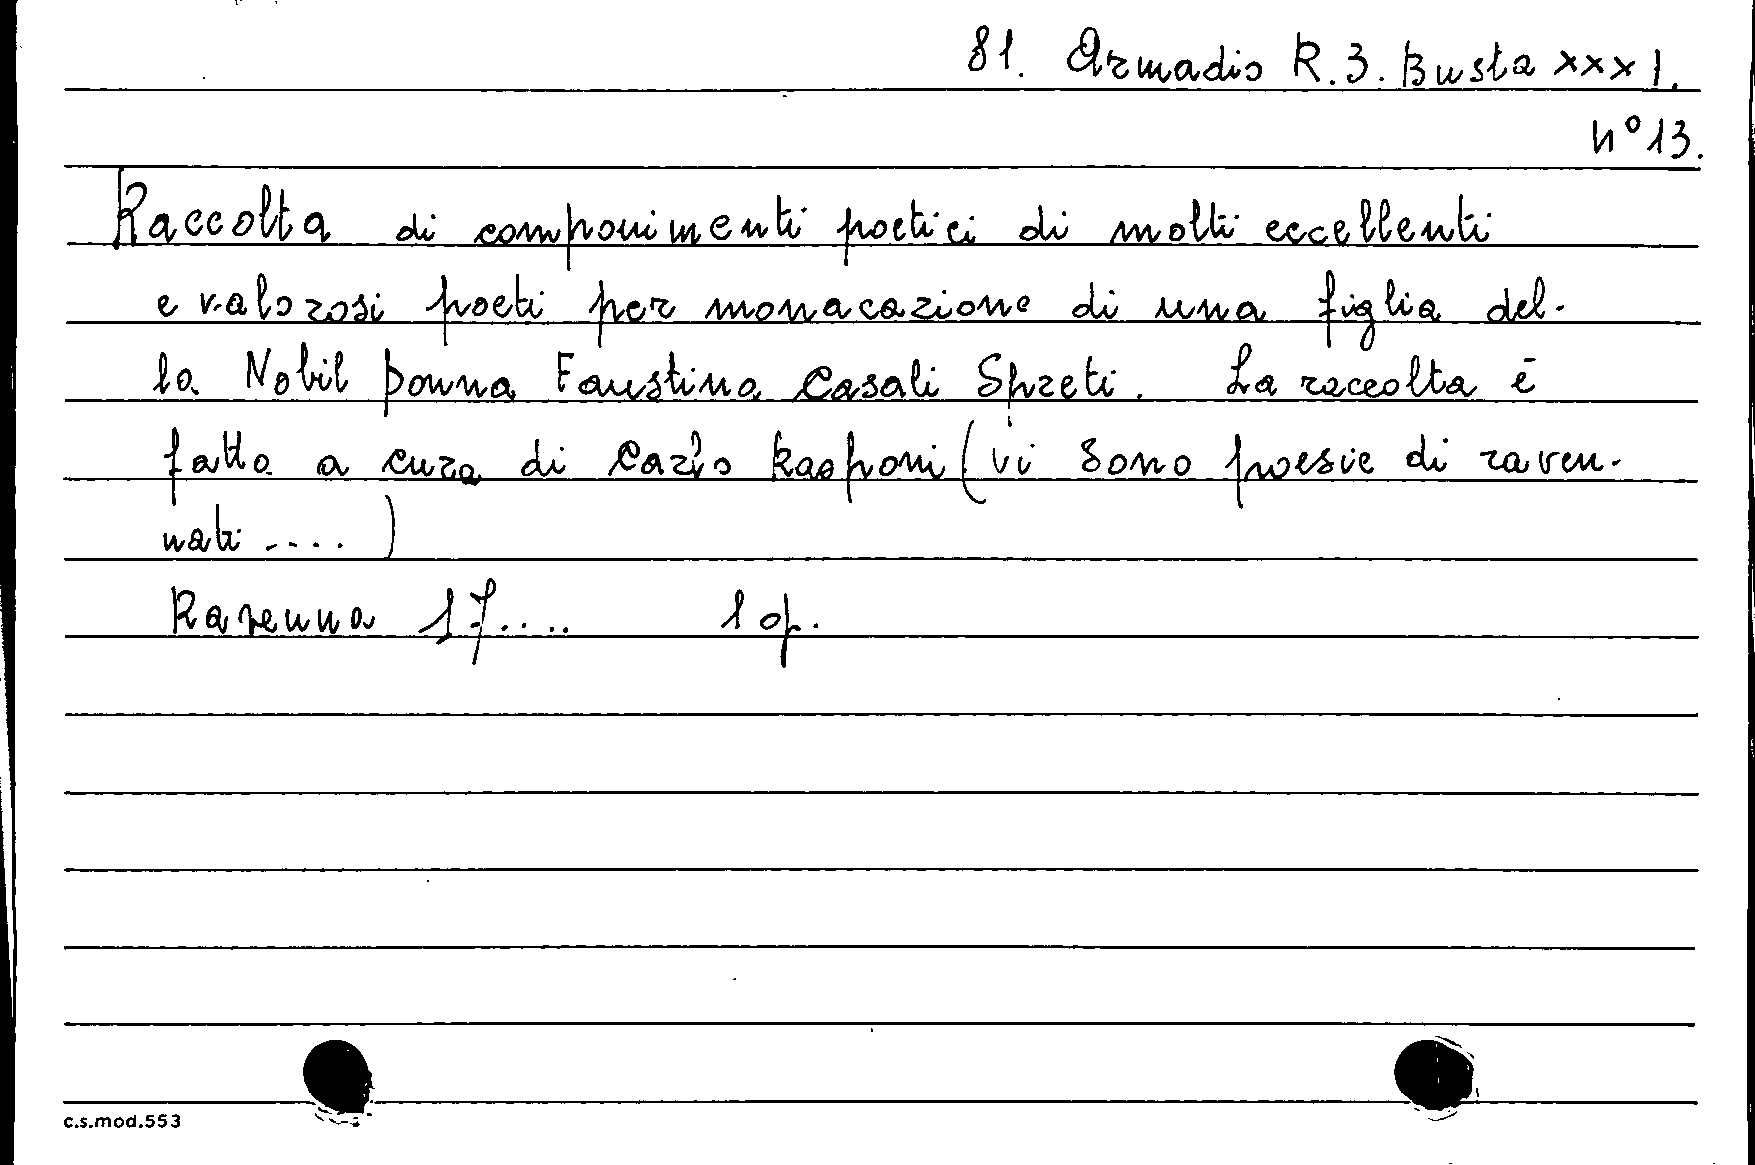 81. Armadio R.3. Busta XXXI.
n° 13.
Raccolta di componimenti poetici di molti eccellenti
e valorosi poeti per monacazione di una figlia del-
la Nobil Donna Faustina Casali Spreti. La raccolta è
fatta a cura di Carlo Rasponi (vi sono poesie di raven-
nati ....)
Ravenna 17.... 1 op.
c.s.mod.553